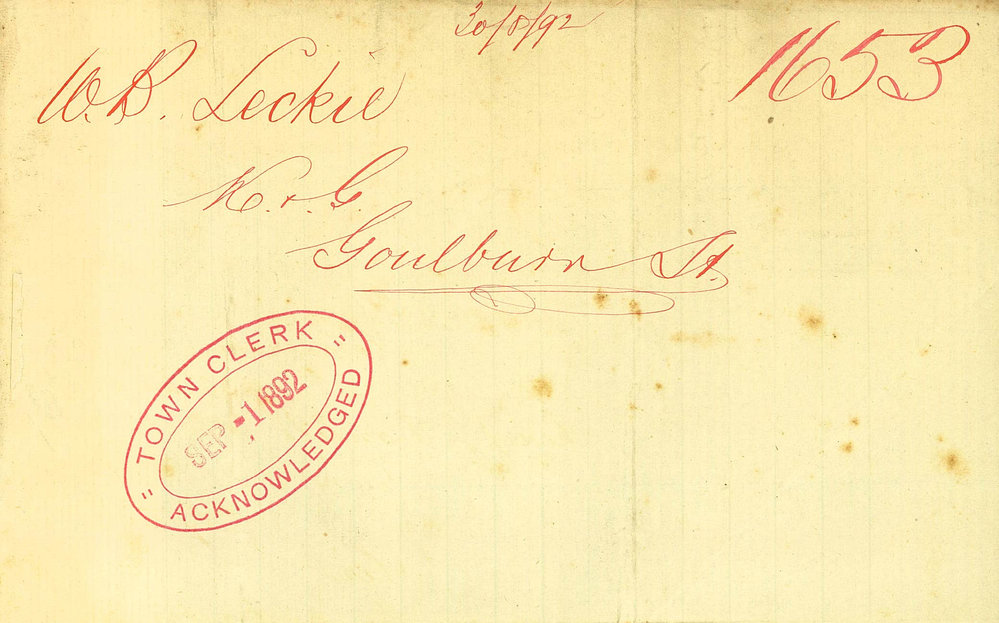 30/8/92
1653
W.B. Leckie
K. & G.
Goulburn St.
" TOWN CLERK "
SEP -1 1892
ACKNOWLEDGED